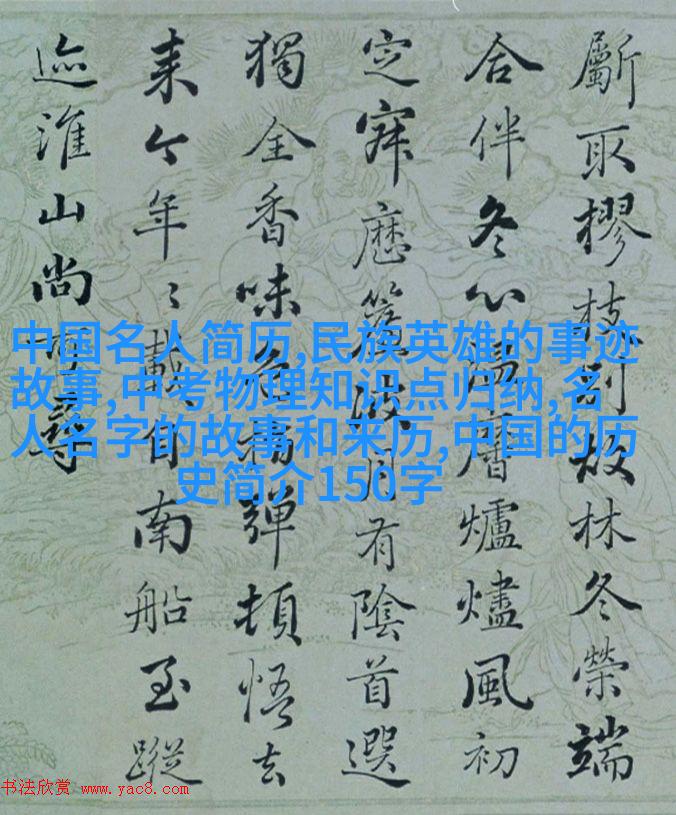 斸取樛枝奴林冬榮端
合伴冬心層爐燼風初
定寐簾波月有陰首選
獨全香味彈頓悟去
来今年〻載自南船至蹤
迹淮山尚可尋
中国名人简历,民族英雄的事迹
故事,中考物理知识点归纳,名
人名字的故事和来历,中国的历
史简介150字
书法欣赏 www.yac8.com